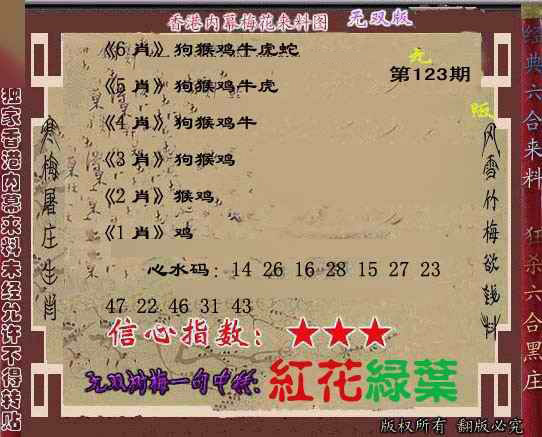 香港内幕梅花来料图 无双版
《6 肖》狗猴鸡牛虎蛇
无
第123期
《5 肖》狗猴鸡牛虎
版
《4 肖》狗猴鸡牛
《3 肖》狗猴鸡
《2 肖》猴鸡
《1 肖》鸡
心水码：14 26 16 28 15 27 23
47 22 46 31 43
信心指数：★★★
一句中特:紅花綠葉
版权所有 翻版必究
独家香港内幕来料未经允许不得转贴
寒梅屠庄生肖
风雪竹梅欲钱料
经典六合来料 狂杀六合黑庄